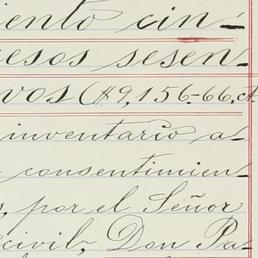 iento cin-
esos sesen-
vos ($9,156-66,
inventario a-
consentimien-
s, por el Señor
civil, Don Pa-